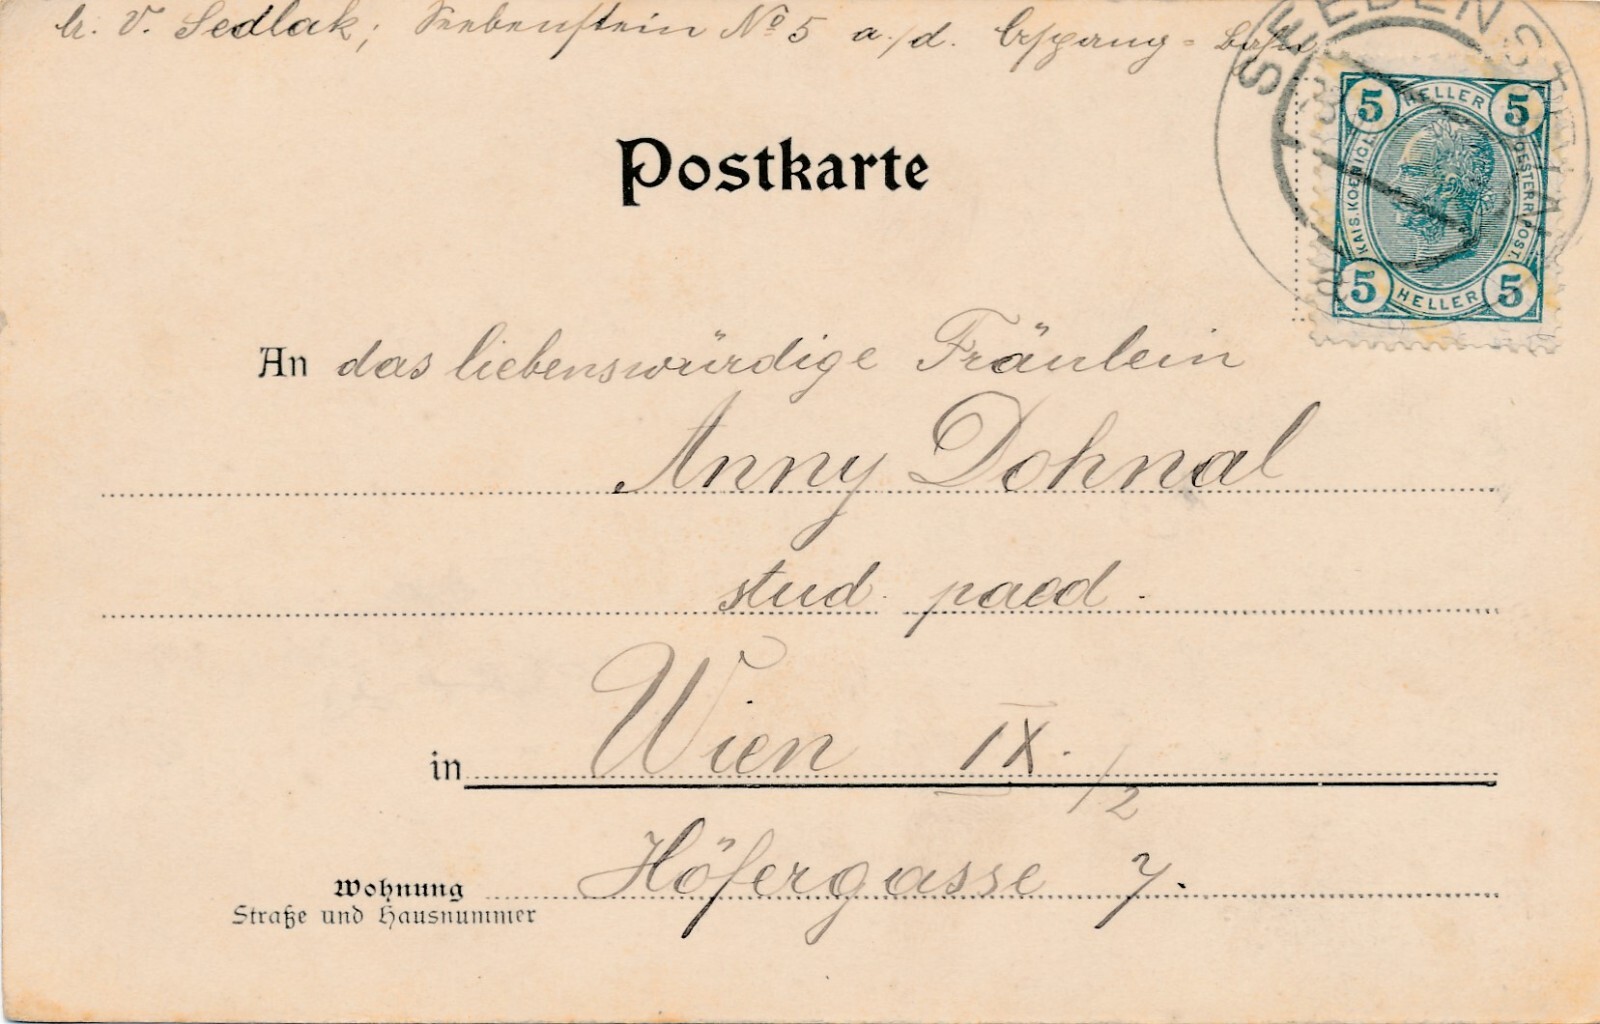 V. Sedlak; Seebenstein No 5 a./d. Aspang-Bahn
SEEBENSTEIN
5 HELLER 5
KAIS. KOENIGL. OESTERR. POST.
5 HELLER 5
Postkarte
An das liebenswürdige Fräulein
Anny Dohnal
stud. paed.
in Wien IX./2
Höfergasse 7.
Wohnung
Straße und Hausnummer